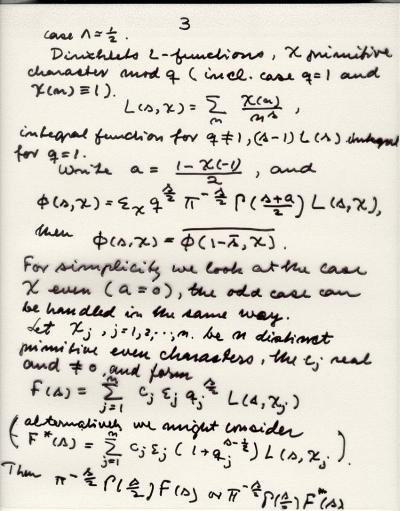 3
case Λ = 1/2.
Dirichlets L-functions, χ primitive
character mod q (incl. case q=1 and
χ(n) ≡ 1).
L(s,χ) = Σ_n χ(n)/n^s ,
integral function for q≠1, (s-1) L(s) integral
for q=1.
Write a = (1-χ(-1))/2 , and
φ(s,χ) = ε_χ q^{s/2} π^{-s/2} Γ((s+a)/2) L(s,χ),
then φ(s,χ) = \overline{φ(1-\bar{s},χ)} .
For simplicity we look at the case
χ even (a=0), the odd case can
be handled in the same way.
Let χ_j, j=1,2,..,n. be n distinct
primitive even characters, the c_j real
and ≠ 0, and form
F(s) = Σ_{j=1}^{n} c_j ε_j q_j^{s/2} L(s,χ_j)
(alternatively we might consider
F*(s) = Σ_{j=1}^{n} c_j ε_j (1+q_j^{s-1/2}) L(s,χ_j).)
Then π^{-s/2} Γ(s/2) F(s) or π^{-s/2} Γ(s/2) F*(s)